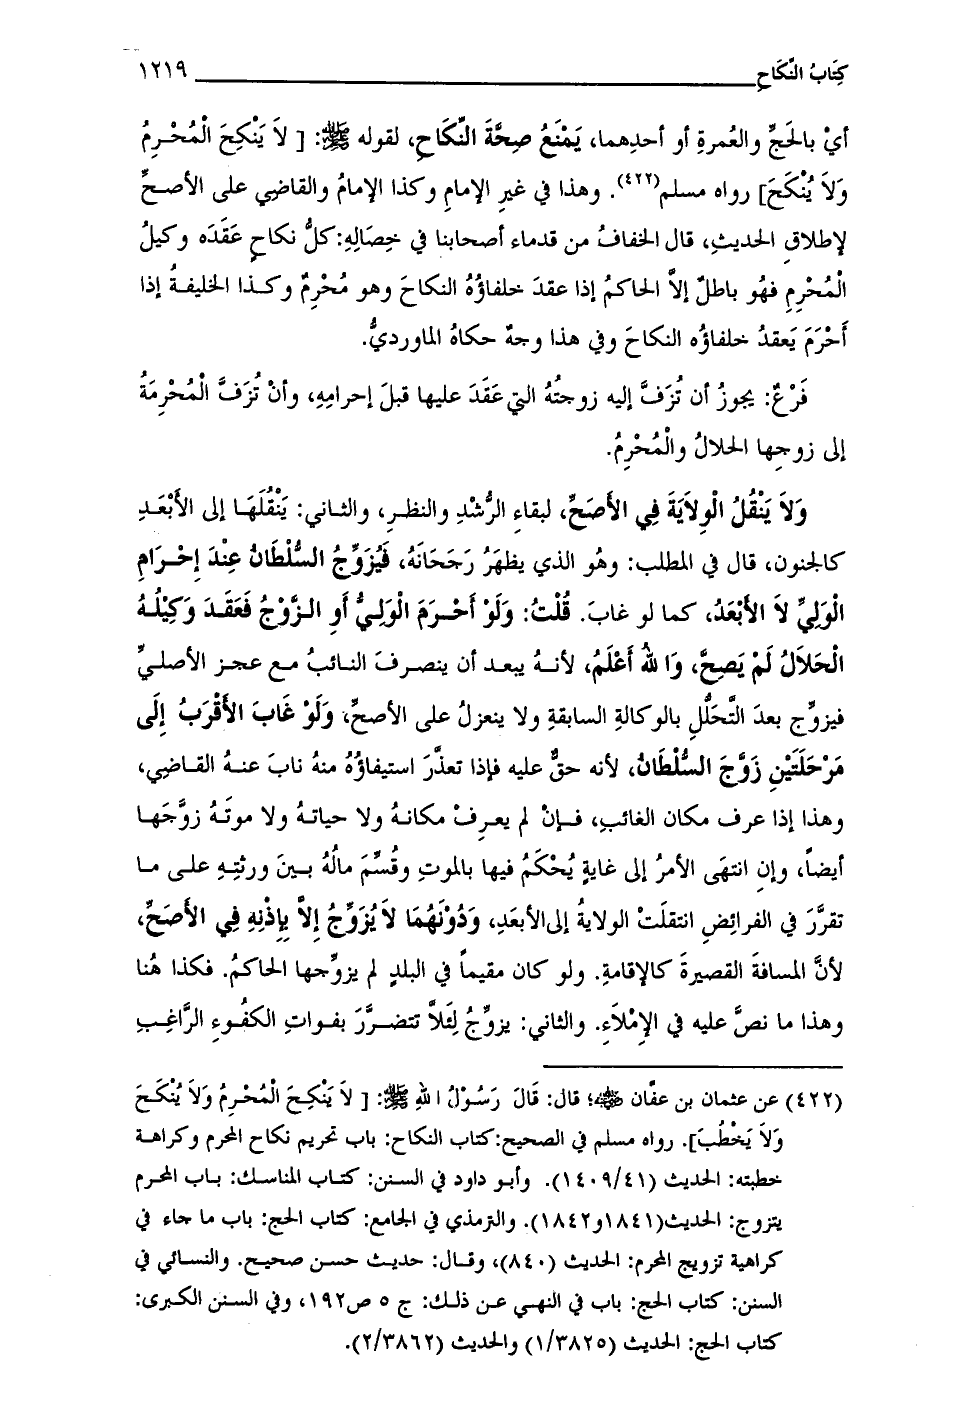 كِتَابُ النِّكَاحِ ١٢١٩
أيْ بالحَجِّ والعُمرةِ أو أحدِهما، يَمْنَعُ صِحَّةَ النِّكَاحِ، لقوله ﷺ: [ لاَ يَنْكِحَ الْمُحْرِمُ
وَلاَ يُنْكَحَ] رواه مسلم(٤٢٢). وهذا في غيرِ الإمامِ وكذا الإمامُ والقاضِي على الأصحِّ
لإطلاقِ الحديثِ، قال الخفافُ من قدماء أصحابنا في خِصَالِهِ:كلُّ نكاحٍ عَقَدَه وكيلُ
الْمُحْرِمِ فهُو باطلٌ إلاَّ الحاكمُ إذا عقدَ خلفاؤُهُ النكاحَ وهو مُحْرِمٌ وكذا الخليفةُ إذا
أَحْرَمَ يَعقدُ خلفاؤُه النكاحَ وفي هذا وجهٌ حكاهُ الماورديُّ.
فَرْعٌ: يجوزُ أن تُزَفَّ إليه زوجتُهُ التي عَقَدَ عليها قبلَ إحرامِهِ، وأنْ تُزَفَّ الْمُحْرِمَةُ
إلى زوجِها الحلالُ والْمُحْرِمُ.
وَلاَ يَنْقُلُ الْوِلاَيَةَ فِي الأَصَحِّ، لبقاءِ الرُّشْدِ والنظرِ، والثاني: يَنْقُلَهَا إلى الأَبْعَدِ
كالجنون، قال في المطلب: وهُو الذي يظهَرُ رَجَحَانَهُ، فَيُزَوِّجُ السُّلْطَانُ عِنْدَ إِحْرَامِ
الْوَلِيِّ لاَ الأَبْعَدُ، كما لو غابَ. قُلْتُ: وَلَوْ أَحْرَمَ الْوَلِيُّ أَوِ الزَّوْجُ فَعَقَدَ وَكِيْلُهُ
الْحَلاَلُ لَمْ يَصِحَّ، وَا للهُ أَعْلَمُ، لأنهُ يبعد أن ينصرفَ النائبُ مع عجز الأصليِّ
فيزوِّج بعدَ التَّحَلُّلِ بالوكالةِ السابقةِ ولا ينعزلُ على الأصحِّ، وَلَوْ غَابَ الأَقْرَبُ إِلَى
مَرْحَلَتَيْنِ زَوَّجَ السُّلْطَانُ، لأنه حقٌّ عليه فإذا تعذَّرَ استيفاؤُهُ منهُ نابَ عنهُ القاضِي،
وهذا إذا عرف مكان الغائبِ، فإنْ لم يعرِفْ مكانهُ ولا حياتهُ ولا موتَهُ زوَّجَها
أيضاً، وإن انتهَى الأمرُ إلى غايةٍ يُحْكَمُ فيها بالموتِ وقُسِّمَ مالُهُ بينَ ورثتِهِ على ما
تقرَّرَ في الفرائِضِ انتقلَتْ الولايةُ إلى الأبعَدِ، وَدُوْنَهُمَا لاَ يُزَوِّجُ إِلاَّ بِإِذْنِهِ فِي الأَصَحِّ،
لأنَّ المسافةَ القصيرةَ كالإقامةِ. ولو كان مقيماً في البلدِ لم يزوِّجها الحاكمُ. فكذا هُنا
وهذا ما نصَّ عليه في الإِمْلاَءِ. والثاني: يزوِّجُ لِئَلاَّ تتضرَّرَ بفواتِ الكُفُوءِ الرَّاغِبِ
(٤٢٢) عن عثمان بن عفَّان ﵁؛ قال: قَالَ رَسُوْلُ اللهِ ﷺ: [ لاَ يَنْكِحَ الْمُحْرِمُ وَلاَ يُنْكَحَ
وَلاَ يَخْطُبَ]. رواه مسلم في الصحيح:كتاب النكاح: باب تحريم نكاح المحرم وكراهة
خطبته: الحديث (١٤٠٩/٤١). وأبو داود في السنن: كتاب المناسك: باب المحرم
يتزوج: الحديث(١٨٤١و١٨٤٢). والترمذي في الجامع: كتاب الحج: باب ما جاء في
كراهية تزويج المحرم: الحديث (٨٤٠)، وقال: حديث حسن صحيح. والنسائي في
السنن: كتاب الحج: باب في النهي عن ذلك: ج ٥ ص١٩٢، وفي السنن الكبرى:
كتاب الحج: الحديث (١/٣٨٢٥) والحديث (٢/٣٨٦٢).